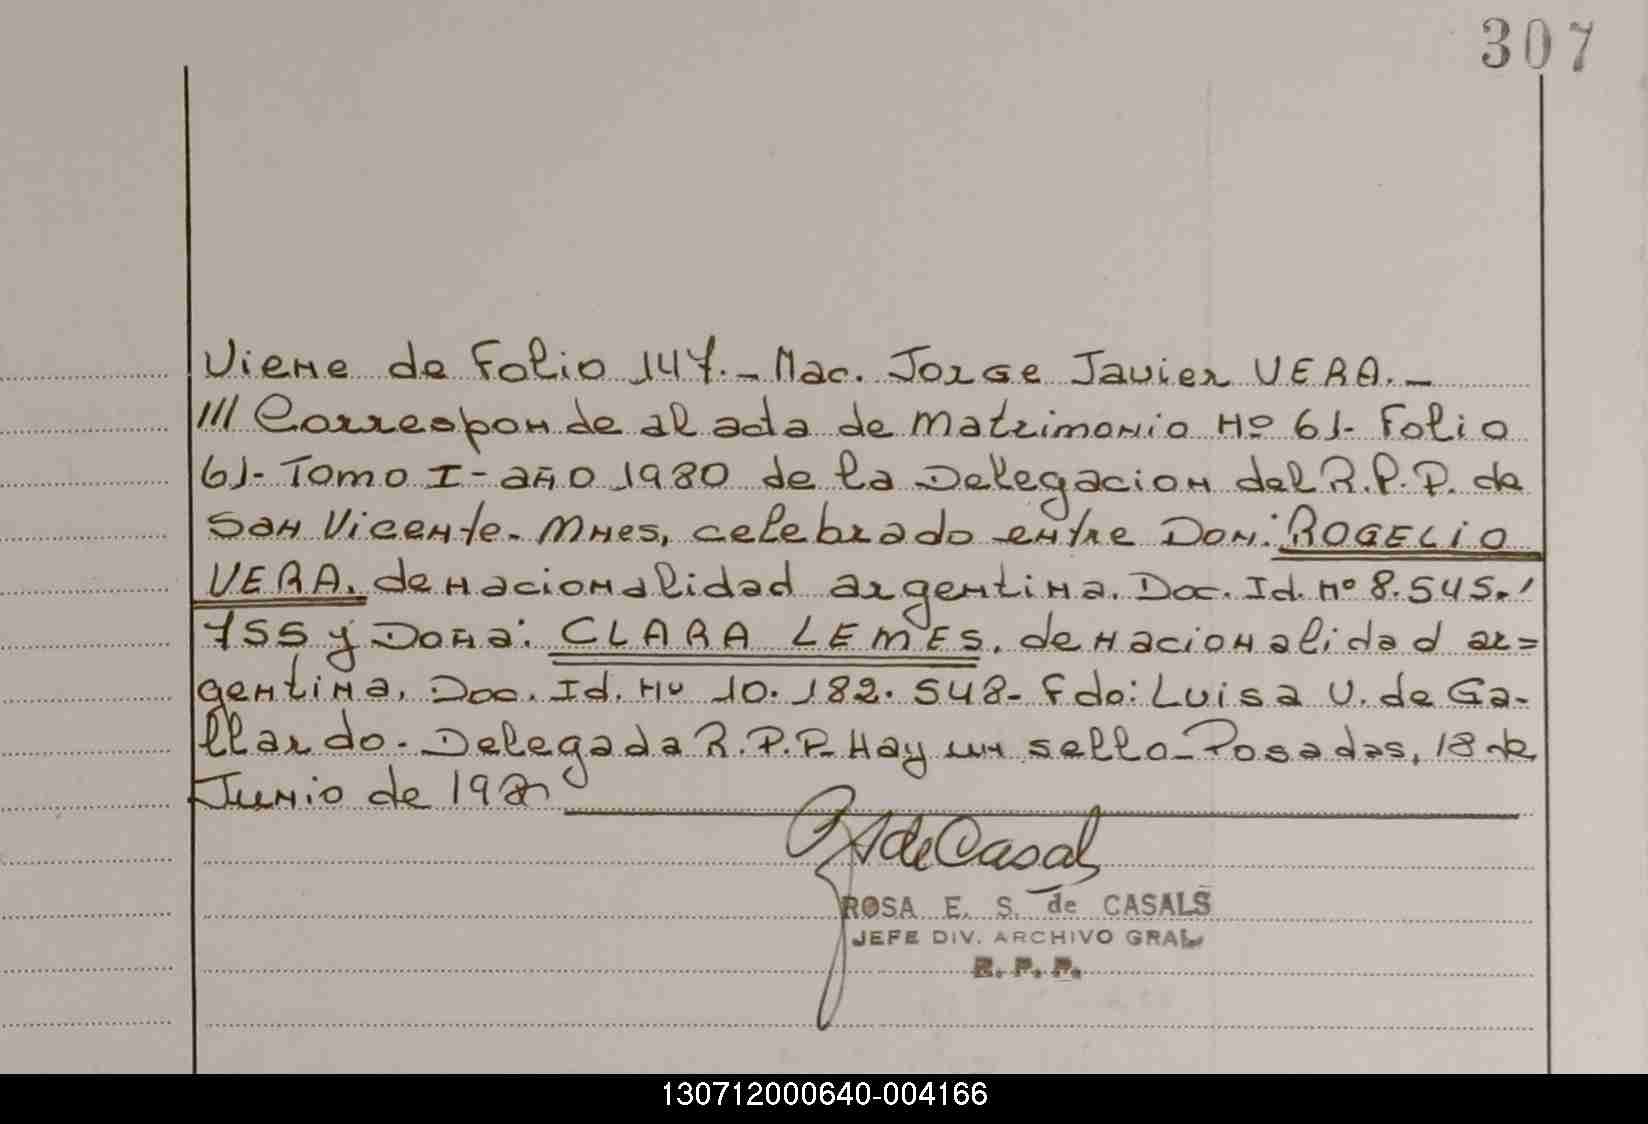 307
Viene de Folio 147.- Nac. Jorge Javier VERA.-
/// Corresponde al acta de matrimonio Nº 61- Folio
61- Tomo I- año 1980 de la Delegacion del R.P.P. de
San Vicente. Mnes, celebrado entre Don: ROGELIO
VERA, de nacionalidad argentina. Doc. Id. Nº 8.545.
755 y Doña: CLARA LEMES, de nacionalidad ar=
gentina, Doc. Id. Nº 10.182.548- Fdo: Luisa V. de Ga-
llardo. Delegada R.P.P. Hay un sello- Posadas, 18 de
Junio de
de Casals
ROSA E. S. de CASALS
JEFE DIV. ARCHIVO GRAL
R. P. P.
130712000640-004166